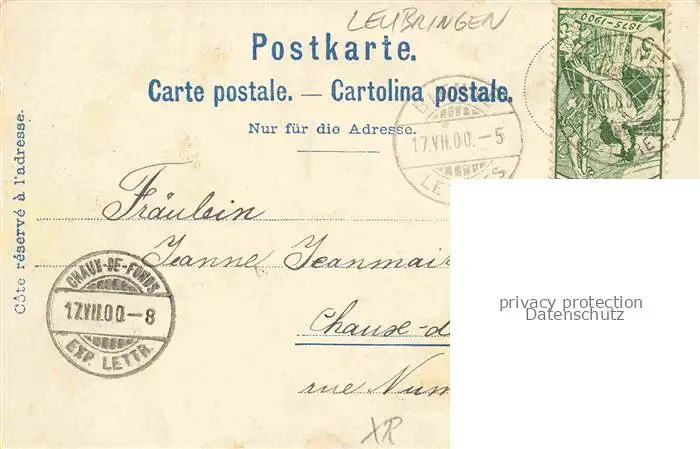 LEUBRINGEN
Postkarte.
Carte postale. — Cartolina postale.
Nur für die Adresse.
Côte réservé à l'adresse.
1875-1900
5
17.VII.00.-5
LETTRES
Fräulein
Jeanne Jeanmair
Chaux-d
rue Num
CHAUX-DE-FONDS
17.VII.00-8
EXP. LETTR.
XR
privacy protection
Datenschutz